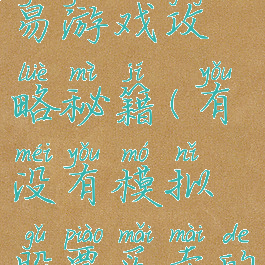 易游戏攻
lüè mì jí yǒu
略秘籍(有
méi yǒu mó nǐ
没有模拟
gǔ piào mǎi mài de
股票买卖的